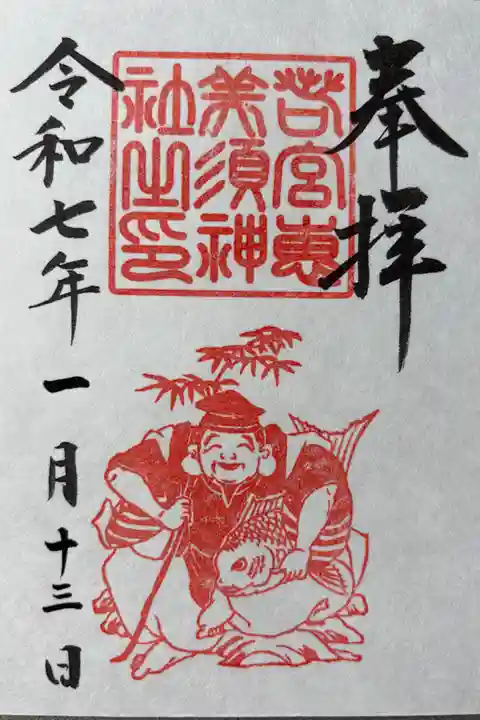 奉拝
若宮恵
美須神
社之印
令和七年一月十三日